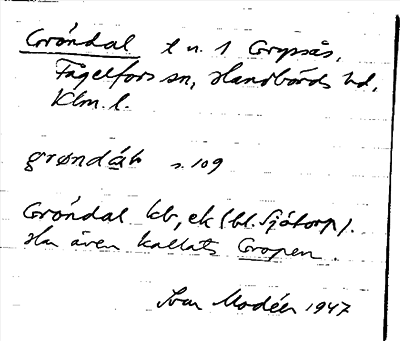 Gröndal t u. 1 Grypsås,
Fågelfors sn, Handbörds hd,
Klm. l.
grøndáh s. 109
Gröndal kb, ek (bl. Sjötorp).
Har även kallats Gropen.
Ivar Modéer 1947